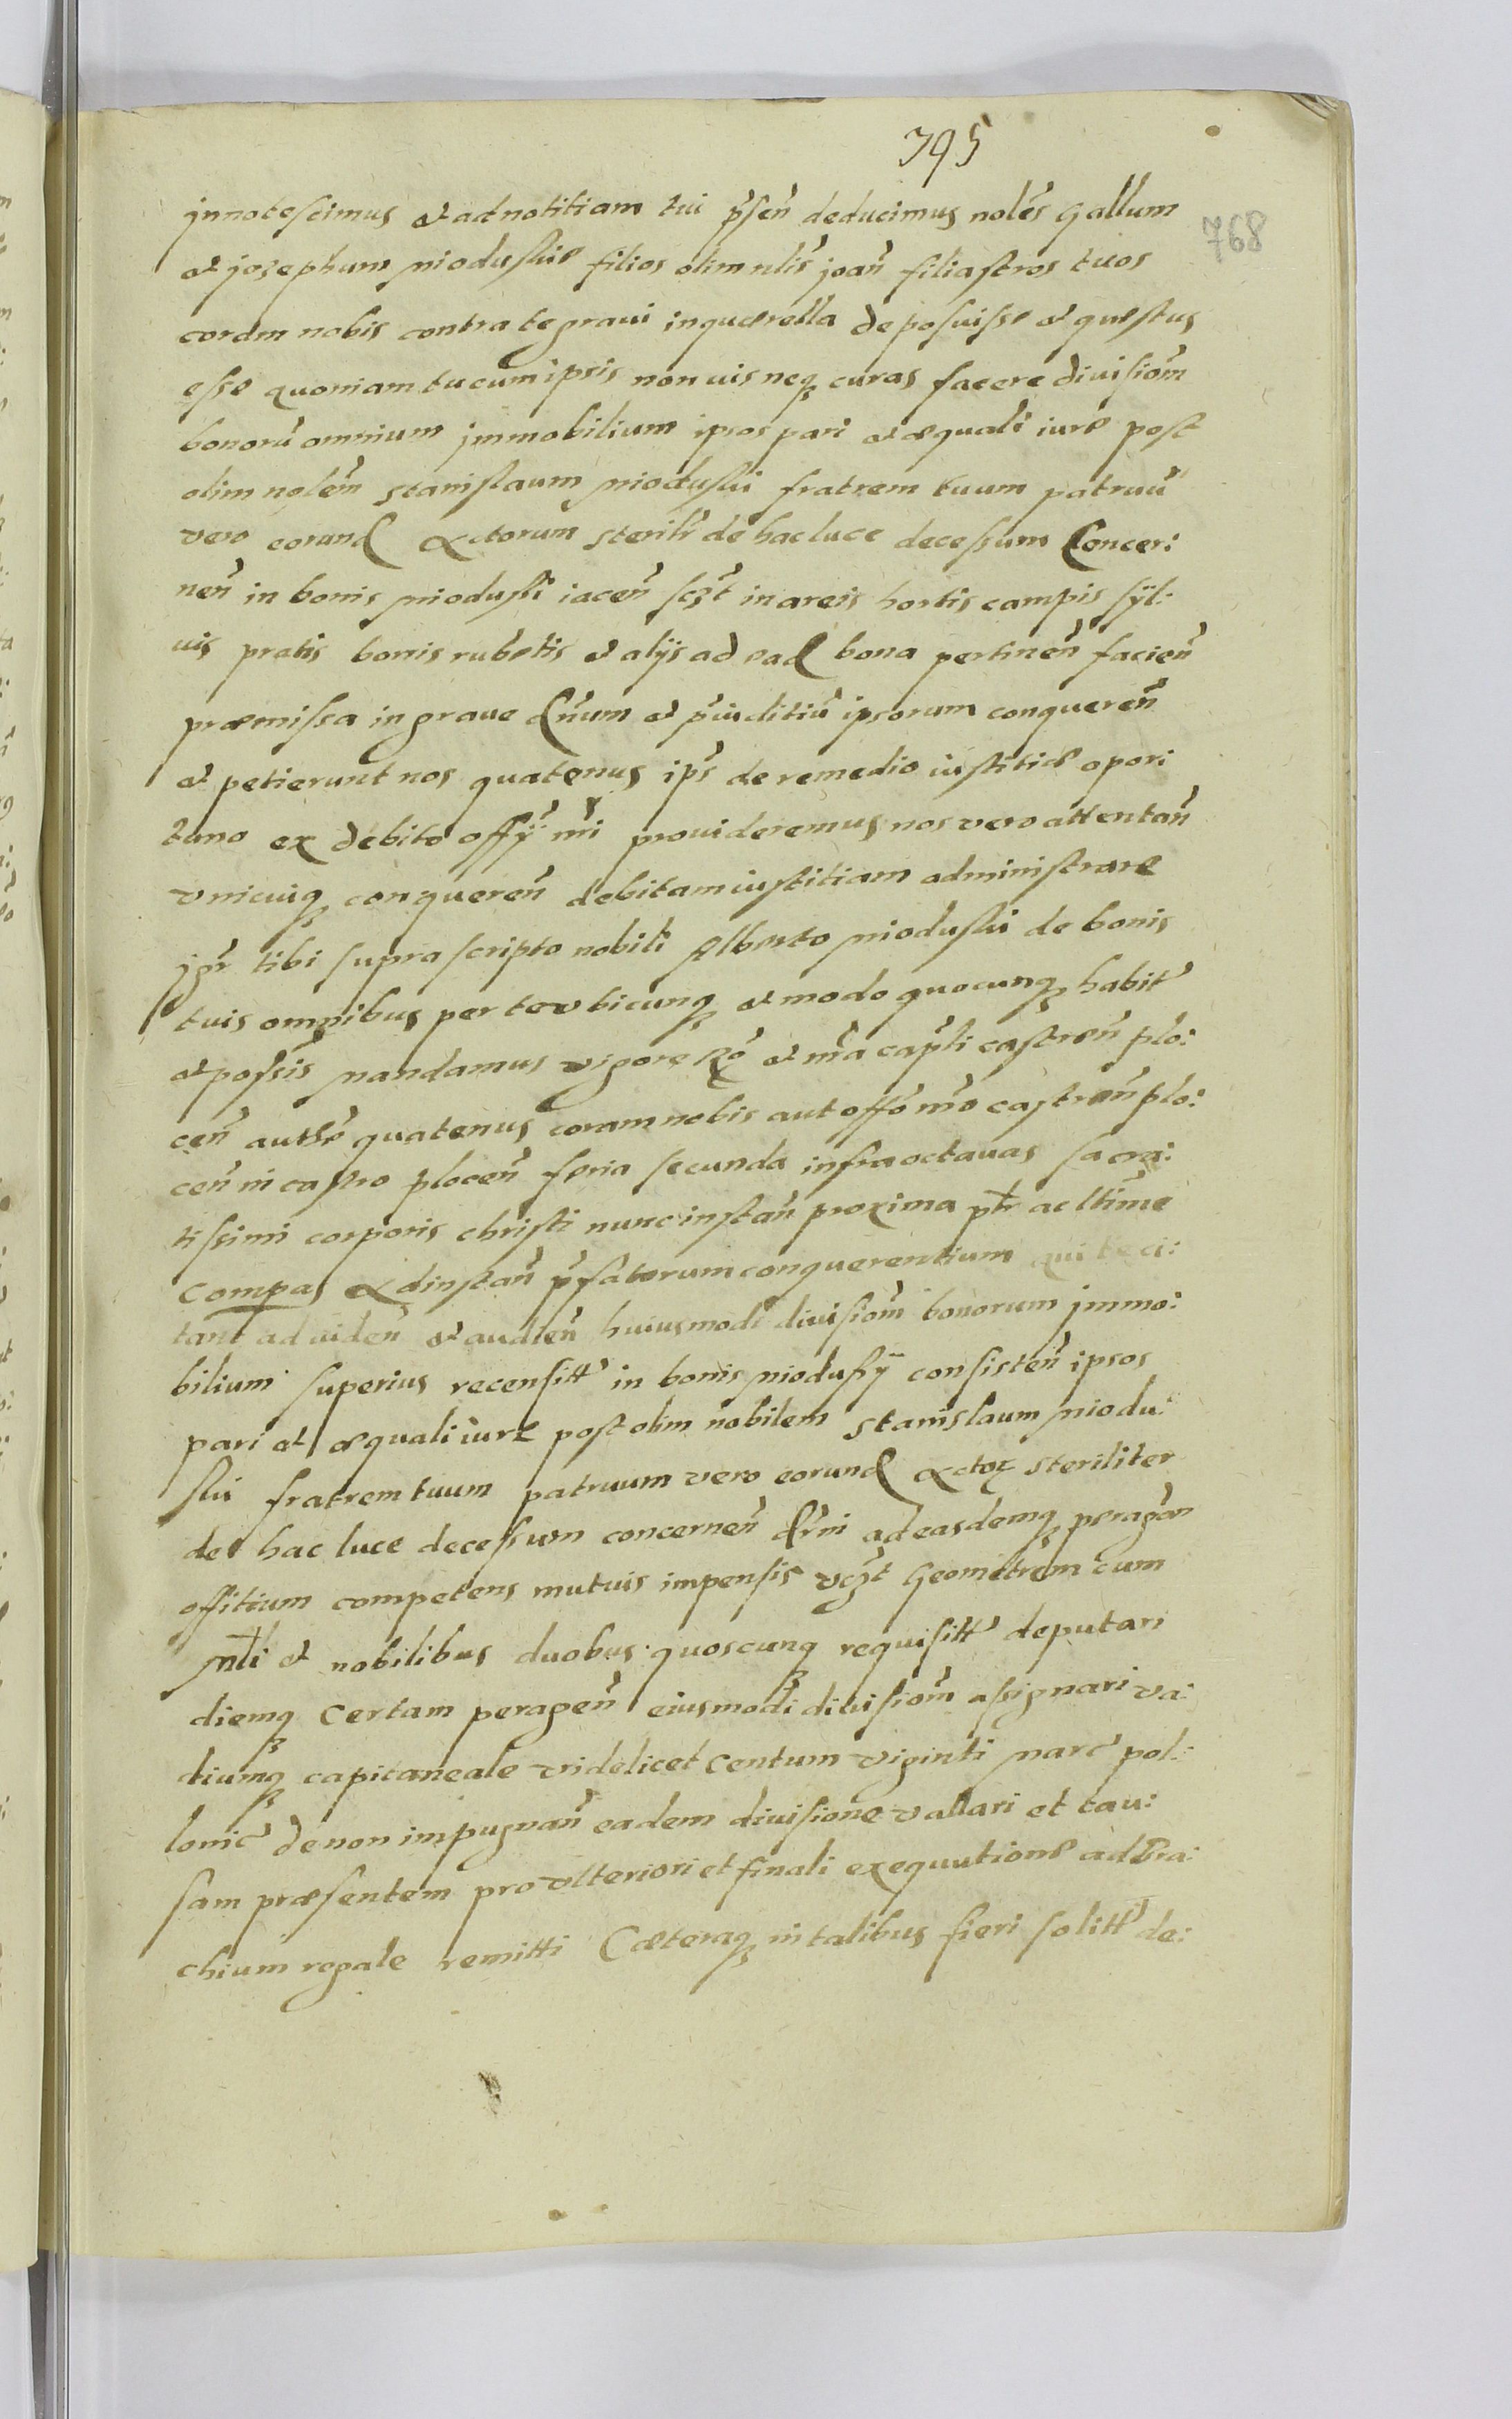 395
768
jnnotescimus et ad notitiam tui p̃sen̄ deducimus nolẽs Gallum
et jozephum Miodusskie filios olim nlis̃ joan̄ filiastros tuos
coram nobis contra te graui in quærella deposuisse et quæstus
esse quoniam tu cum ipsis non uis neq curas facere diuisiom̄
bonorũ omnium jmmobilium ipsos pari et æquali iure post
olim nolẽm Stanislaum Miodusski fratrem tuum patruũ
vero eorund Actorum sterilr̃ de hac luce decessum Concer:
nen̄ in bonis Miodussi iacen̄ scʒt in areis hortis campis syl:
uis pratis borris rubetis et alijs ad ead bona pertinen̄ facien̄
præmissa in graue dn̄um et p̃iuditiũ ipsorum conqueren̄
et petierunt nos quatenus ips̃ de remedio iustitiæ opor
tuno ex debito offy nri prouideremus nos vero attentan̄
vnicuiq conqueren̄ debitam iustitiam administrare
jgr̃ tibi supra scripto nobili Alberto Miodusski de bonis
tuis omnibus per te vbicunq et modo quocunq habit̃
et possis̃ mandamus vigore Rõ et nr̃a capl̃i castren̄ plo:
cen̄ authẽ quatenus coram nobis aut offõ nr̃o castren̄ plo:
cen̄ in castro plocen̄ feria secunda infra octauas sacra:
tissimi corporis christi nunc instan̄ proxima ptr̃ ac ltime
Compas Ad instan̄ p̃fatorum conquerentium qui te ci:
tant ad uiden̄ et audien̄ huiusmodi diuisiom̄ bonorum jmmo:
bilium superius recensitt̃ in bonis Miodusy consisten̄ ipsos
pari et æquali iure post olim nobilem Stanislaum Miodu:
ski fratrem tuum patruum vero eorund Actoꝝ steriliter
de hac luce decessum concernen̄ dr̃ni ad easdemq peragen̄
offitium competens mutuis impensis vʒt Geometrem cum
Mli et nobilibus duobus quoscunq requisitt̃ deputari
diemq certam peragen̄ eiusmodi diuisiom̄ assignari va:
diumq capitaneale videlicet Centum viginti marc̃ pol:
lonic̃ de non impugnan̄ eadem diuisione vallari et cau:
sam præsentem pro vlteriori et finali exequutione ad bra:
chium regale remitti Cæteraq in talibus fieri solitt̃ de: